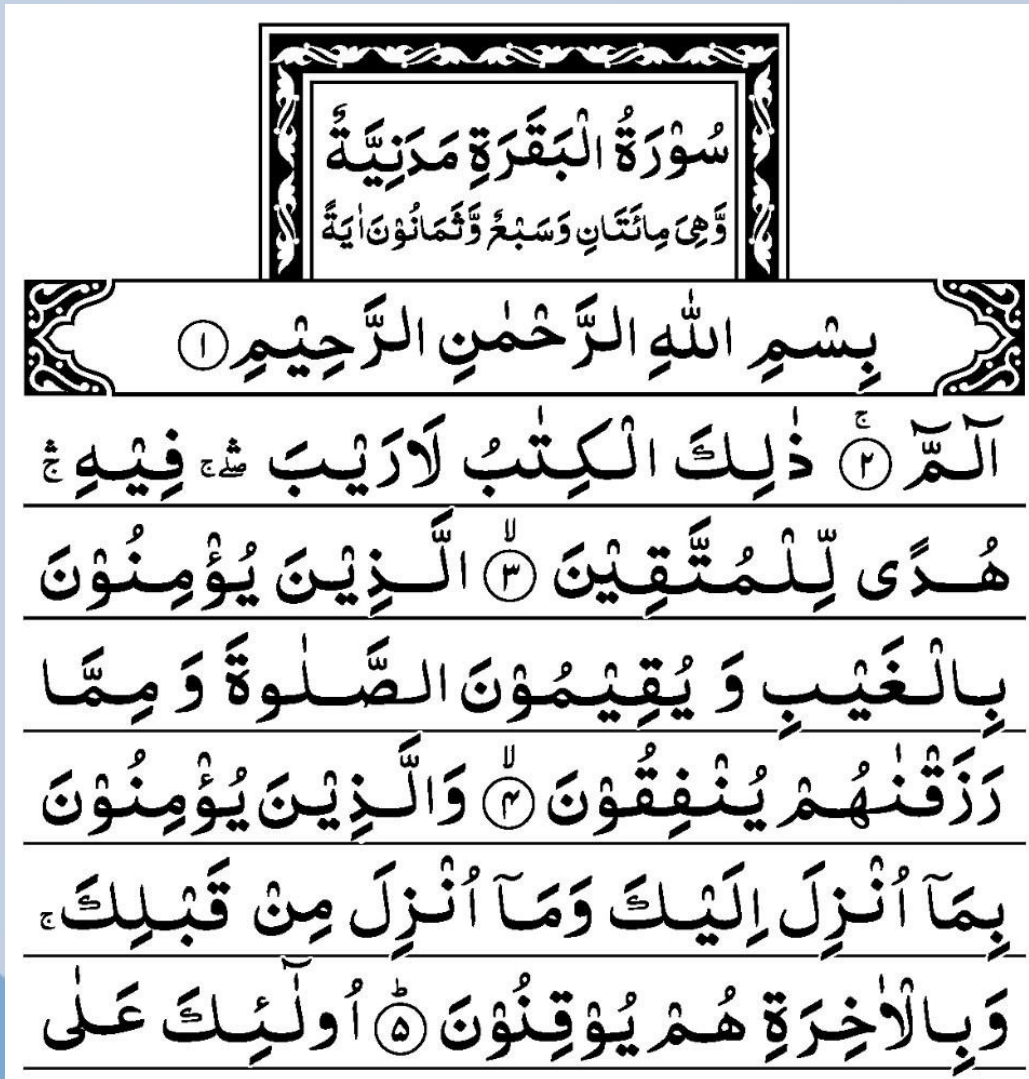 سُوْرَةُ الْبَقَرَةِ مَدَنِيَّةٌ
وَّهِيَ مِائَتَانِ وَسَبْعٌ وَّثَمَانُوْنَ اٰيَةً
بِسْمِ اللّٰهِ الرَّحْمٰنِ الرَّحِيْمِ ١
آلٓمّٓ ۚ ٢ ذٰلِكَ الْكِتٰبُ لَارَيْبَ ۛۖۚ فِيْهِ ۛۚ
هُدًى لِّلْمُتَّقِيْنَ ۙ ٣ الَّذِيْنَ يُؤْمِنُوْنَ
بِالْغَيْبِ وَ يُقِيْمُوْنَ الصَّلٰوةَ وَ مِمَّا
رَزَقْنٰهُمْ يُنْفِقُوْنَ ۙ ۴ وَالَّذِيْنَ يُؤْمِنُوْنَ
بِمَآ اُنْزِلَ اِلَيْكَ وَمَآ اُنْزِلَ مِنْ قَبْلِكَ ۚ
وَبِالْاٰخِرَةِ هُمْ يُوْقِنُوْنَ ؕ ۵ اُولٰٓئِكَ عَلٰى